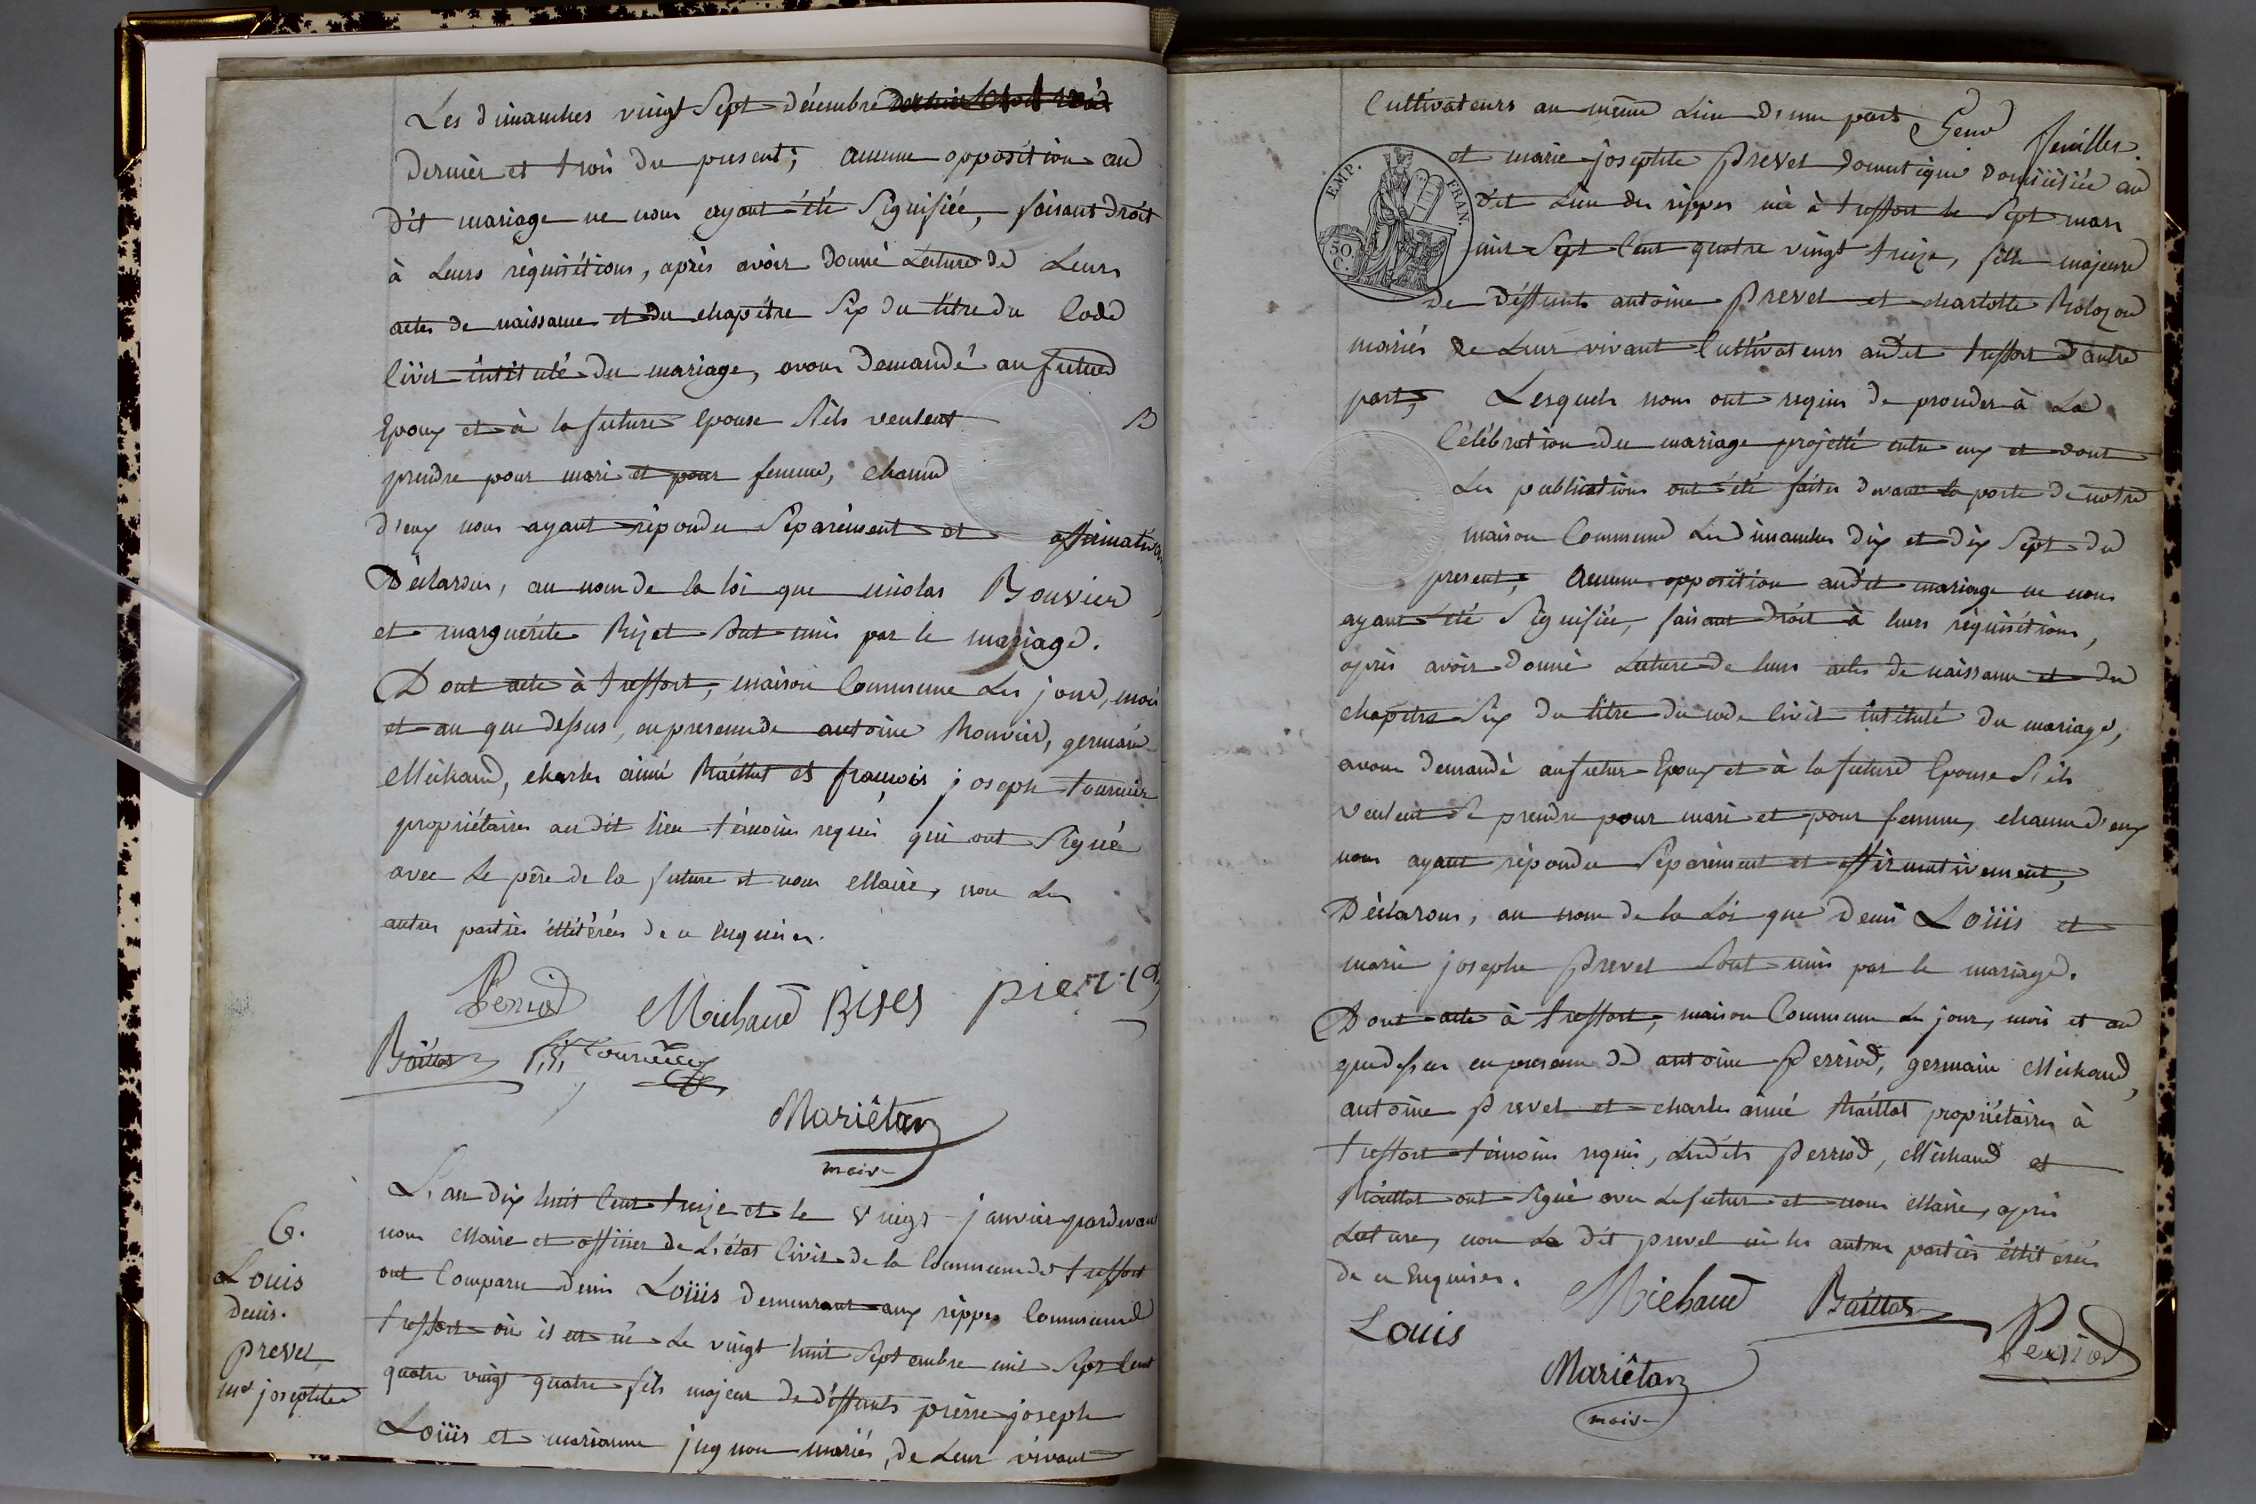 Les dimanches vingt Sept décembre
dernier et trois du present; aucune opposition au
dit mariage ne nous ayant été Signifiée, faisant droit
à Leurs réquisitions, après avoir donné Lecture de Leurs
actes de naissance et du chapitre Six du titre du Code
Civil intitulé du mariage, avons demandé au futur
Epoux et à la future Epouse S'ils veulent
prendre pour mari et pour femme, chacun
d'eux nous ayant répondu Séparément et affirmativem
Déclarons, au nom de la loi que nicolas Bouvier
et marguérite Rijet Sont unis par le mariage.
Dont acte à treffort, maison Commune Les jour, mois
et an que dessus, en presence de antoine, germain
Michaud, charles aimé Baillat et françois joseph tournier
propriétaires au dit lieu témoins requis qui ont Signé
avec Le père de la future et nous Maire, non Les
autres parties illitérées de ce Enquises.
Perriod Michaud
Baillat Tournier
Mariétan
maire
6.
Louis
denis.
prevel
mie josephte
L'an dix huit Cent treize et le vingt janvier pardevant
nous Maire et officier de L'état Civil de la Commune de treffort
ont Comparu denis Loüis demeurant aux rippes Commune d
treffort où il est né Le vingt huit Septembre mil Sept Cent
quatre vingt quatre fils majeur de déffunts pierre joseph
Loüis et marianne jugnon mariés, de Leur vivant
Cultivateurs au même Lieu d'une part
feuillet
EMP. FRAN.
50 C.
et marie josephte prevel domestique domiciliée au
dit Lieu des rippes née à treffort le Sept mars
mil Sept Cent quatre vingt treize, fille majeure
de déffunts antoine prevel et charlotte Bolozon
mariés de Leur vivant Cultivateurs audit treffort d'autre
part, Lesquels nous ont requis de proceder à La
Célébration du mariage projetté entre eux et dont
Les publications ont été faites devant la porte de notre
maison Commune Les dimanches dix et dix Sept du
present; Aucune opposition audit mariage ne nous
ayant été Signifiée, faisant droit à leurs réquisitions,
après avoir donné Lecture de leurs actes de naissance et du
chapitre Six du titre du code Civil intitulé du mariage,
avons demandé au futur Epoux et à la future Epouse S'ils
veulent Se prendre pour mari et pour femme, chacun d'eux
nous ayant répondu Séparément et affirmativement,
Déclarons, au nom de la Loi que denis Loüis et
marie josephe prevel Sont unis par le mariage.
Dont acte à treffort, maison Commune Les jour, mois et an
que dessus en presence de antoine Perriod, germain Michaud,
antoine prevel et charles aimé Baillat propriétaires à
treffort témoins requis, Lesdits perriod, Michaud et
Baillat ont Signé avec Le futur et nous Maire, après
Lecture, non Le dit prevel ni les autres parties illitérées
de ce Enquises.
Louis Michaud Baillat Perriod
Mariétan
maire